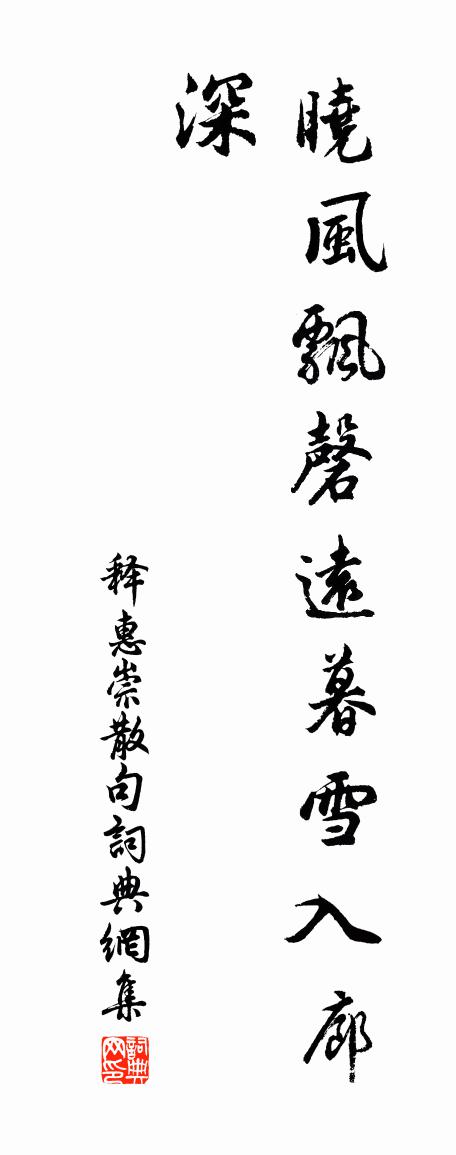 曉風飄磬遠暮雪入廊
深
释惠崇散句詞典網集
詞典网印